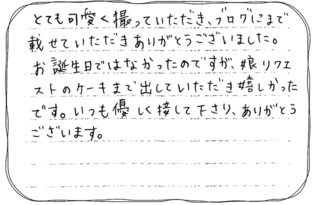 とても可愛く撮っていただき、ブログにまで
載せていただきありがとうございました。
お誕生日ではなかったのですが、娘リクエ
ストのケーキまで出していただき嬉しかった
です。いつも優しく接して下さり、ありがとう
ございます。